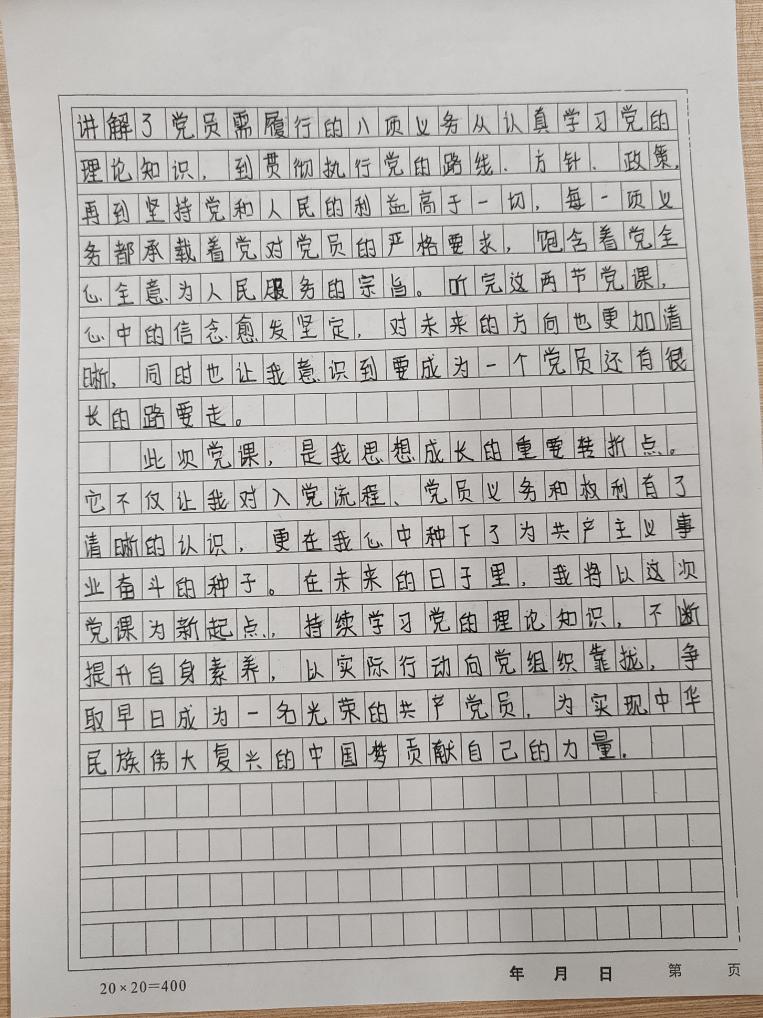 讲解了党员需履行的八项义务从认真学习党的
理论知识，到贯彻执行党的路线、方针、政策，
再到坚持党和人民的利益高于一切，每一项义
务都承载着党对党员的严格要求，饱含着党全
心全意为人民服务的宗旨。听完这两节党课，
心中的信念愈发坚定，对未来的方向也更加清
晰，同时也让我意识到要成为一个党员还有很
长的路要走。
此次党课，是我思想成长的重要转折点。
它不仅让我对入党流程、党员义务和权利有了
清晰的认识，更在我心中种下了为共产主义事
业奋斗的种子。在未来的日子里，我将以这次
党课为新起点，持续学习党的理论知识，不断
提升自身素养，以实际行动向党组织靠拢，争
取早日成为一名光荣的共产党员，为实现中华
民族伟大复兴的中国梦贡献自己的力量。
20×20=400 年 月 日 第 页